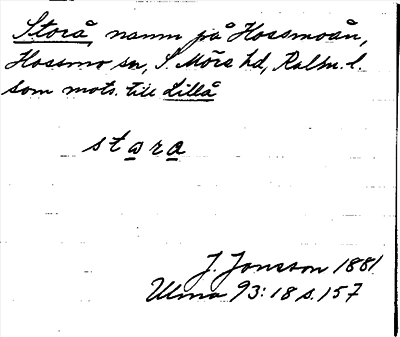 Storå, namn på Hossmoån,
Hossmo sn, S. Möre hd, Kalm. l.
som mots. till Lillå
stora
J. Jonsson 1881
Ulma 93:18 s. 157